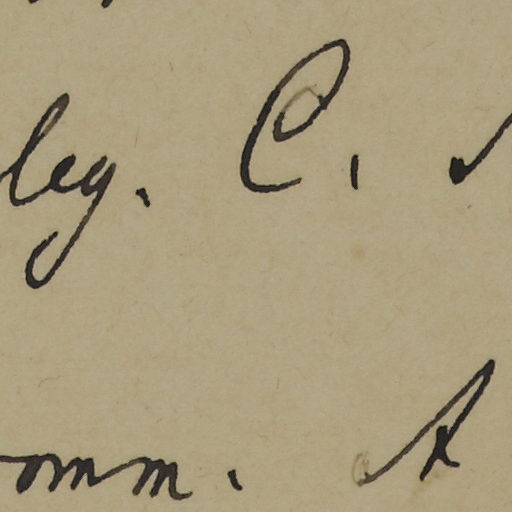 leg. C.
omm. A